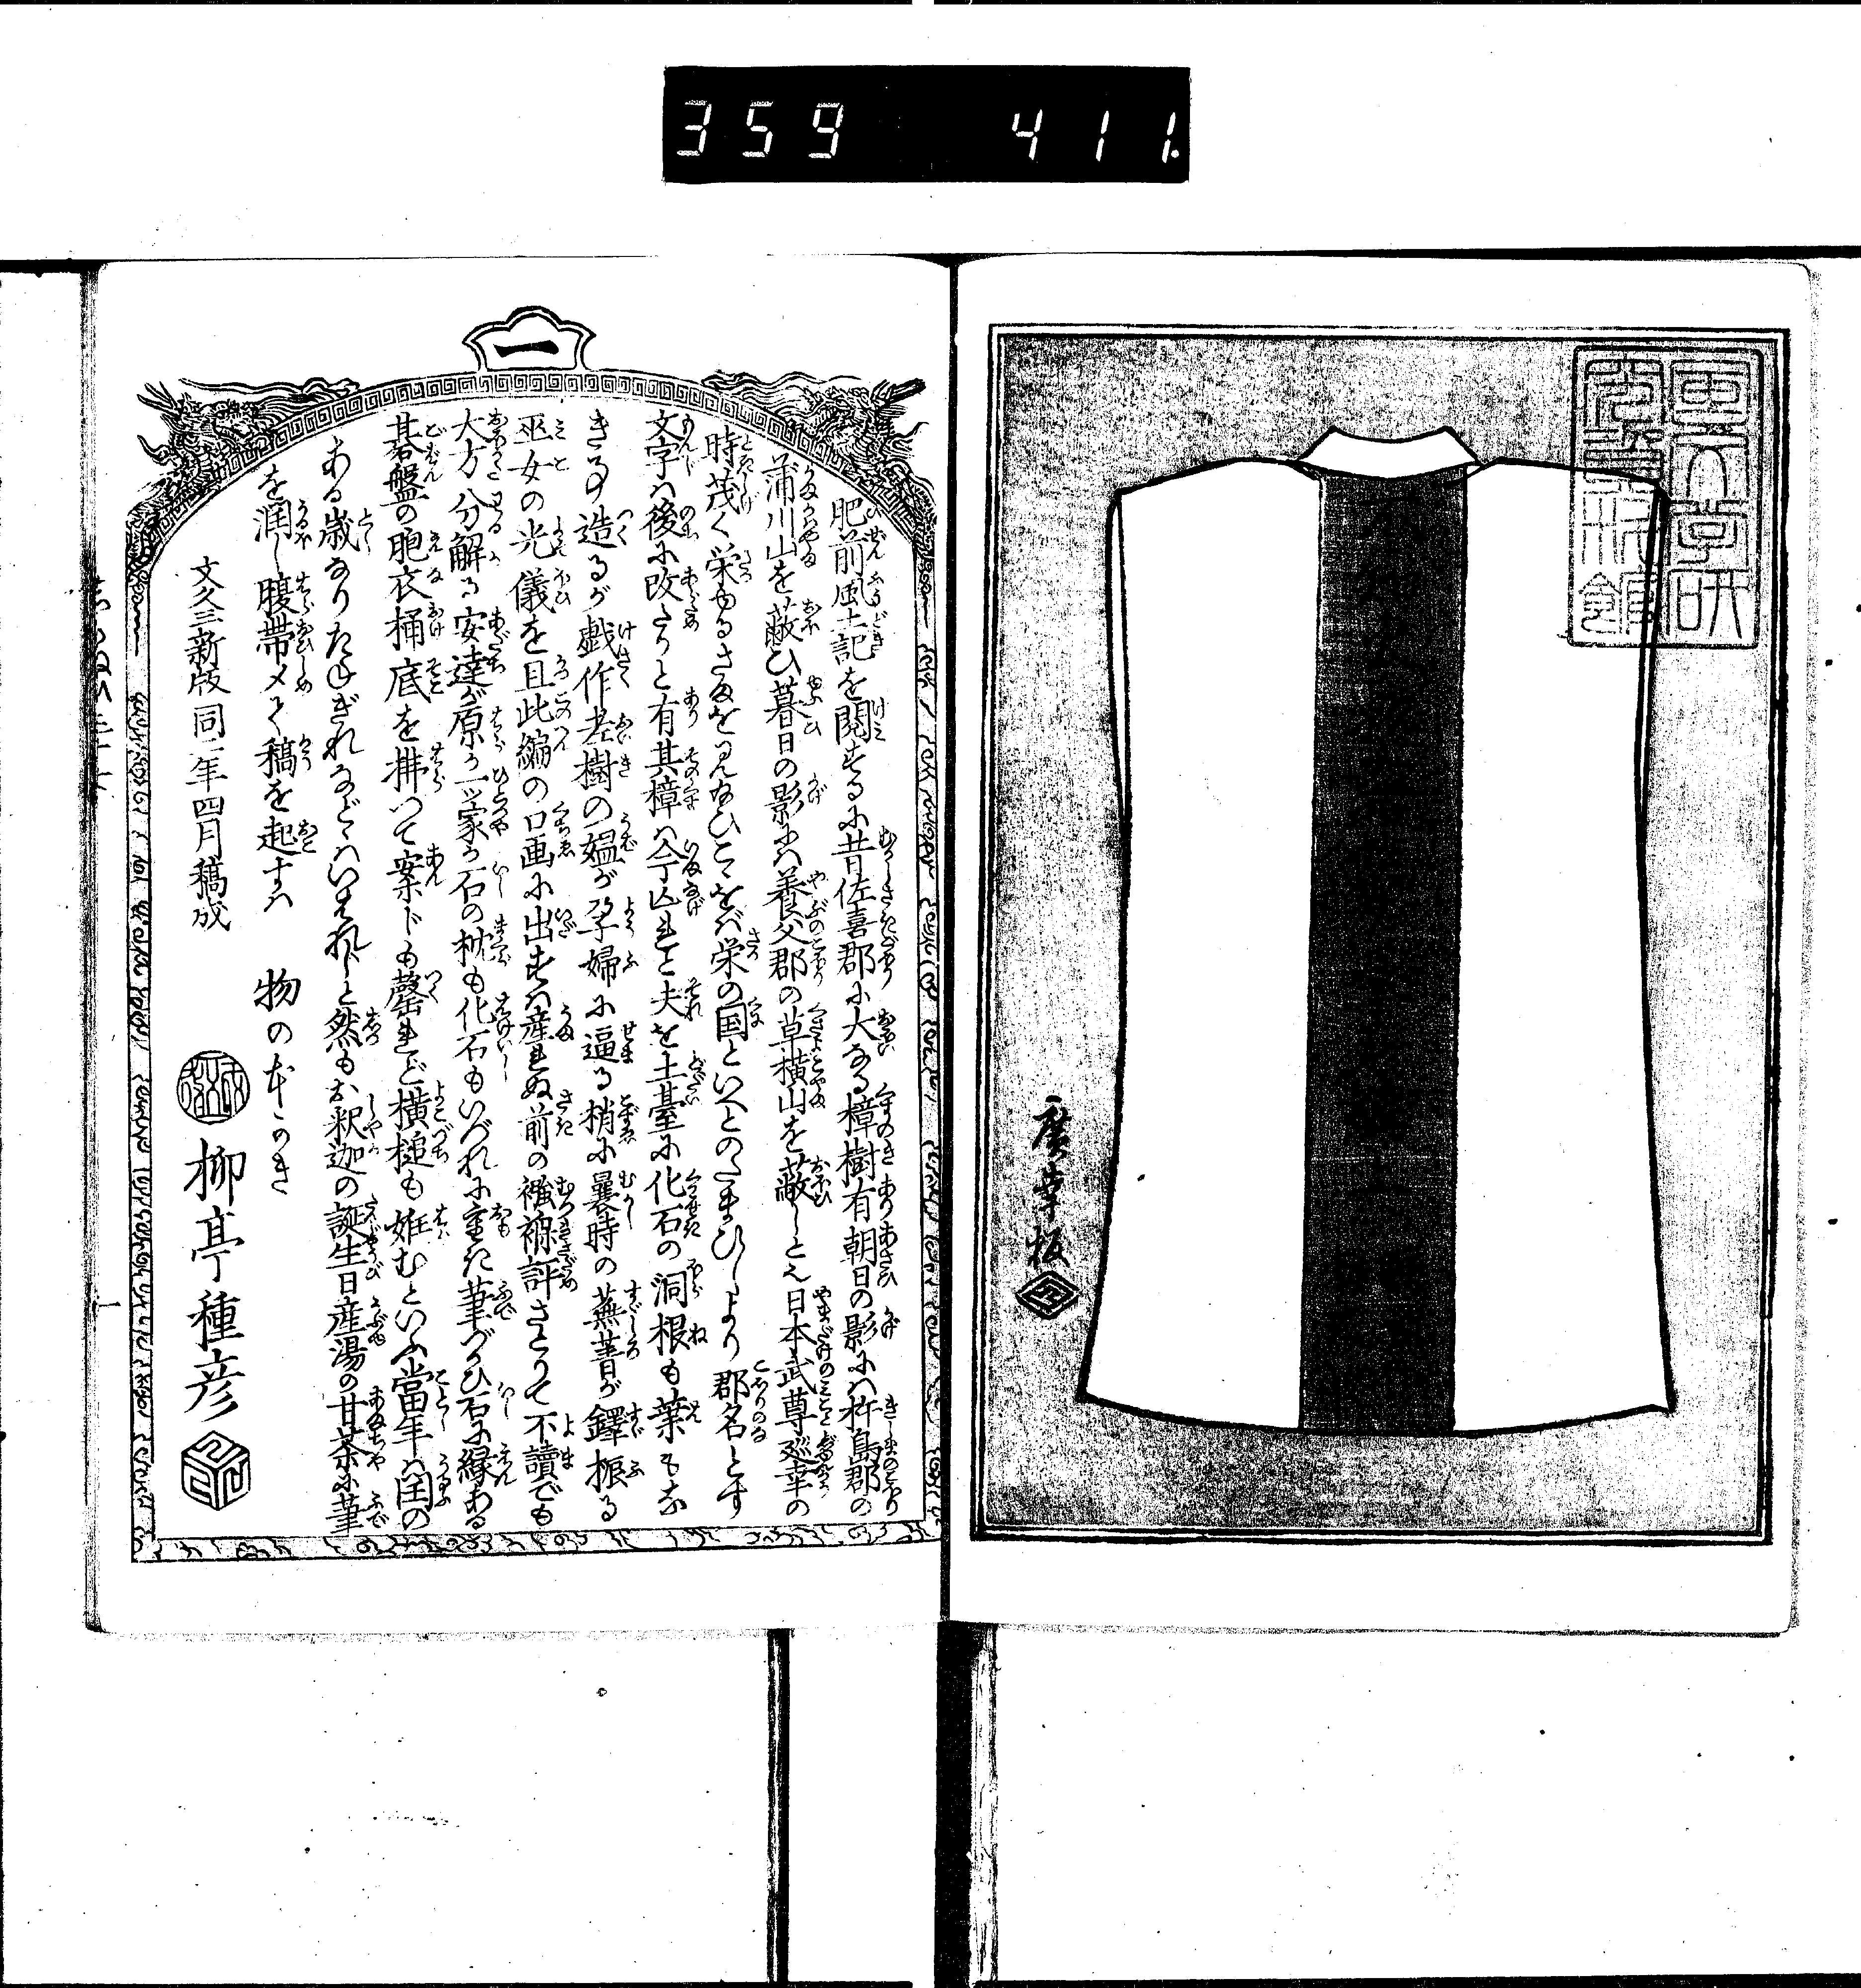 359 411.
国文学研究資料館
廣幸板
一
肥前風土記を閲するに昔佐喜郡に大なる樟樹有朝日の影には杵島郡の
蒲川山を蔽ひ暮日の影には養父郡の草横山を蔽しとえ日本武尊巡幸の
時茂く栄ゆるさまを見給ひこゝをば栄の国といへとのたまひしより郡名とす
文字は後に改たりと有其樟は今亡きと夫を土臺に化石の洞根も葉もな
き事造るが戯作老樹の媼が孕婦に逼る梢に曩時の蕪菁が鐸振る
巫女の光儀を且此編の口画に出せは産れぬ前の襁褓評さとりて不讀でも
大方分解る安達が原の一ッ家の石の枕も化石もいづれに重き筆づかひ石に縁ある
碁盤の胞衣桶底を拂つて案じも罄れど横槌も姙むといふ當年は閏の
ある歳なりたねぎれなどゝはいはれずと然もお釈迦の誕生日産湯の甘茶に筆
を潤し腹帯〆て稿を起すは
物の本かき
文久三新版同二年四月稿成
柳亭種彦